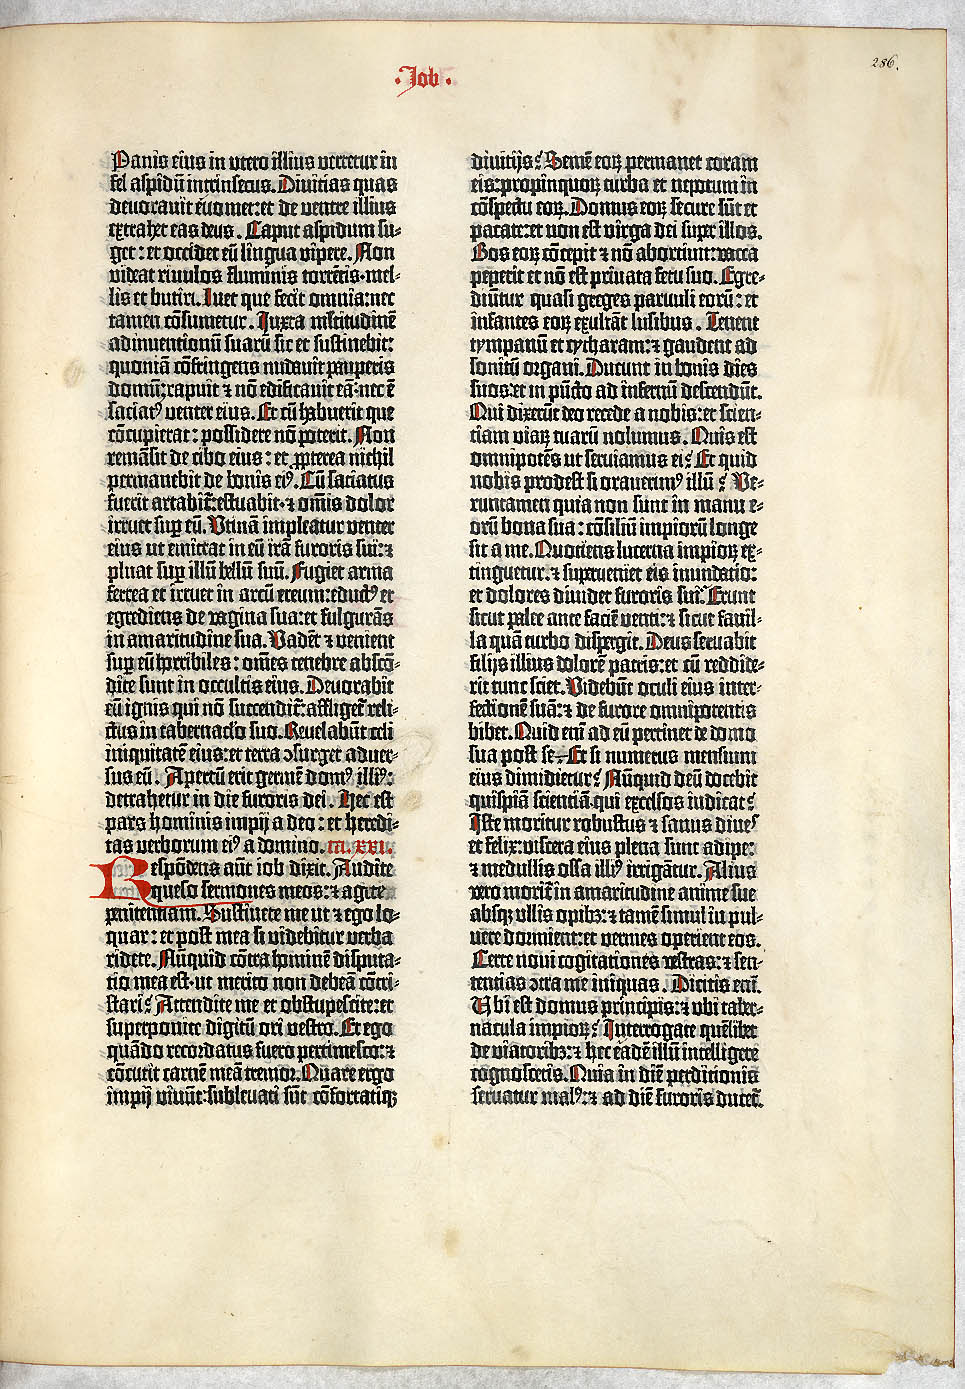 ·Job·
286.
Panis eius in utero illius vertetur in
fel aspidū intrinsecus. Divitias quas
devoravit evomet: et de ventre illius
extrahet eas deus. Caput aspidum su-
get: et occidet eū lingua vipere. Non
videat rivulos fluminis torrētis·mel-
lis et butiri. Luet que fecit omnia: nec
tamen cōsumetur. Juxta mĺtitudinē
adinventionū suarū sic et sustinebit:
quoniā cōfringens nudavit pauperis
domū: rapuit ⁊ nō edificavit eā·nec ē
saciatꝰ venter eius. Et cū habuerit que
cōcupierat: possidere nō poterit. Non
remāsit de cibo eius: et ꝓpterea nichil
permanebit de bonis eiꝰ. Cū saciatus
fuerit artabit̄: estuabit·⁊ om̄is dolor
irruet suꝑ eū. Utinā impleatur venter
eius ut emittat in eū irā furoris sui: ⁊
pluat suꝑ illū bellū suū. Fugiet arma
ferrea et irruet in arcū ereum: eductꝰ et
egrediens de vagina sua: et fulgurās
in amaritudine sua. Vadēt ⁊ venient
suꝑ eū horribiles: om̄es tenebre abscō-
dite sunt in occultis eius. Devorabit
eū ignis qui nō succendit̄: affliget̄ reli-
ctus in tabernaclo suo. Revelabūt celi
iniquitatē eius: et terra ↄsurget adver-
sus eū. Apertū erit germē domꝰ illiꝰ:
detrahetur in die furoris dei. Hec est
pars hominis impij a deo: et heredi-
tas verborum eiꝰ a domino. ca. XXI.
Respōdens aūt iob dixit. Audite
queso sermones meos: ⁊ agite
penitentiam. Sustinete me ut ⁊ ego lo-
quar: et post mea si videbitur verba
ridete. Nūquid cōtra hominē disputa-
tio mea est·ut merito non debeā cōtri-
stari? Attendite me et obstupescite: et
superponite digitū ori vestro. Et ego
quādo recordatus fuero pertimesco: ⁊
cōcutit carnē meā tremor. Quare ergo
impij vivūt: sublevati sūt cōfortatiqꝫ
divitijs? Semē eoꝝ permanet coram
eis: propinquoꝝ turba et nepotum in
cōspectu eoꝝ. Domus eoꝝ secure sūt et
pacate: et non est virga dei super illos.
Bos eoꝝ cōcepit ⁊ nō abortiunt: vacca
peperit et nō est privata fetu suo. Egre-
diūtur quasi greges parvuli eorū: et
infantes eoꝝ exultāt lusibus. Tenent
tympanū et cytharam: ⁊ gaudent ad
sonitū organi. Ducunt in bonis dies
suos: et in pūcto ad infernū descendūt.
Qui dixerūt deo recede a nobis: et scien-
tiam viaꝝ tuarū nolumus. Quis est
omnipotēs ut serviamus ei? Et quid
nobis prodest si oraverimꝰ illū? Ve-
runtamen quia non sunt in manu e-
orū bona sua: cōsiliū impiorū longe
sit a me. Quotiens lucerna impioꝝ ex-
tinguetur: ⁊ superveniet eis inundatio:
et dolores dividet furoris sui? Erunt
sicut palee ante faciē venti: ⁊ sicut favil-
la quā turbo dispergit. Deus servabit
filijs illius dolorē patris: et cū reddide-
rit tunc sciet. Videbūt oculi eius inter-
fectionē suā: ⁊ de furore omnipotentis
bibet. Quid enī ad eū pertinet de domo
sua post se? Et si numerus mensium
eius dimidietur? Nūquid deū docebit
quispiā scientiā·qui excelsos iudicat?
Iste moritur robustus ⁊ sanus dives
et felix: viscera eius plena sunt adipe:
⁊ medullis ossa illiꝰ irrigātur. Alius
vero morit̄ in amaritudine anime sue
absqꝫ ullis opibꝫ: ⁊ tamē simul in pul-
vere dormient: et vermes operient eos.
Certe novi cogitationes vestras: ⁊ sen-
tentias ↄtra me iniquas. Dicitis enī.
Ubi est domus principis: ⁊ ubi taber-
nacula impioꝝ? Interrogate quēlibet
de viatoribꝫ: ⁊ hec eādē illū intelligere
cognoscetis. Quia in diē perditionis
servatur malꝰ: ⁊ ad diē furoris ducet̄.